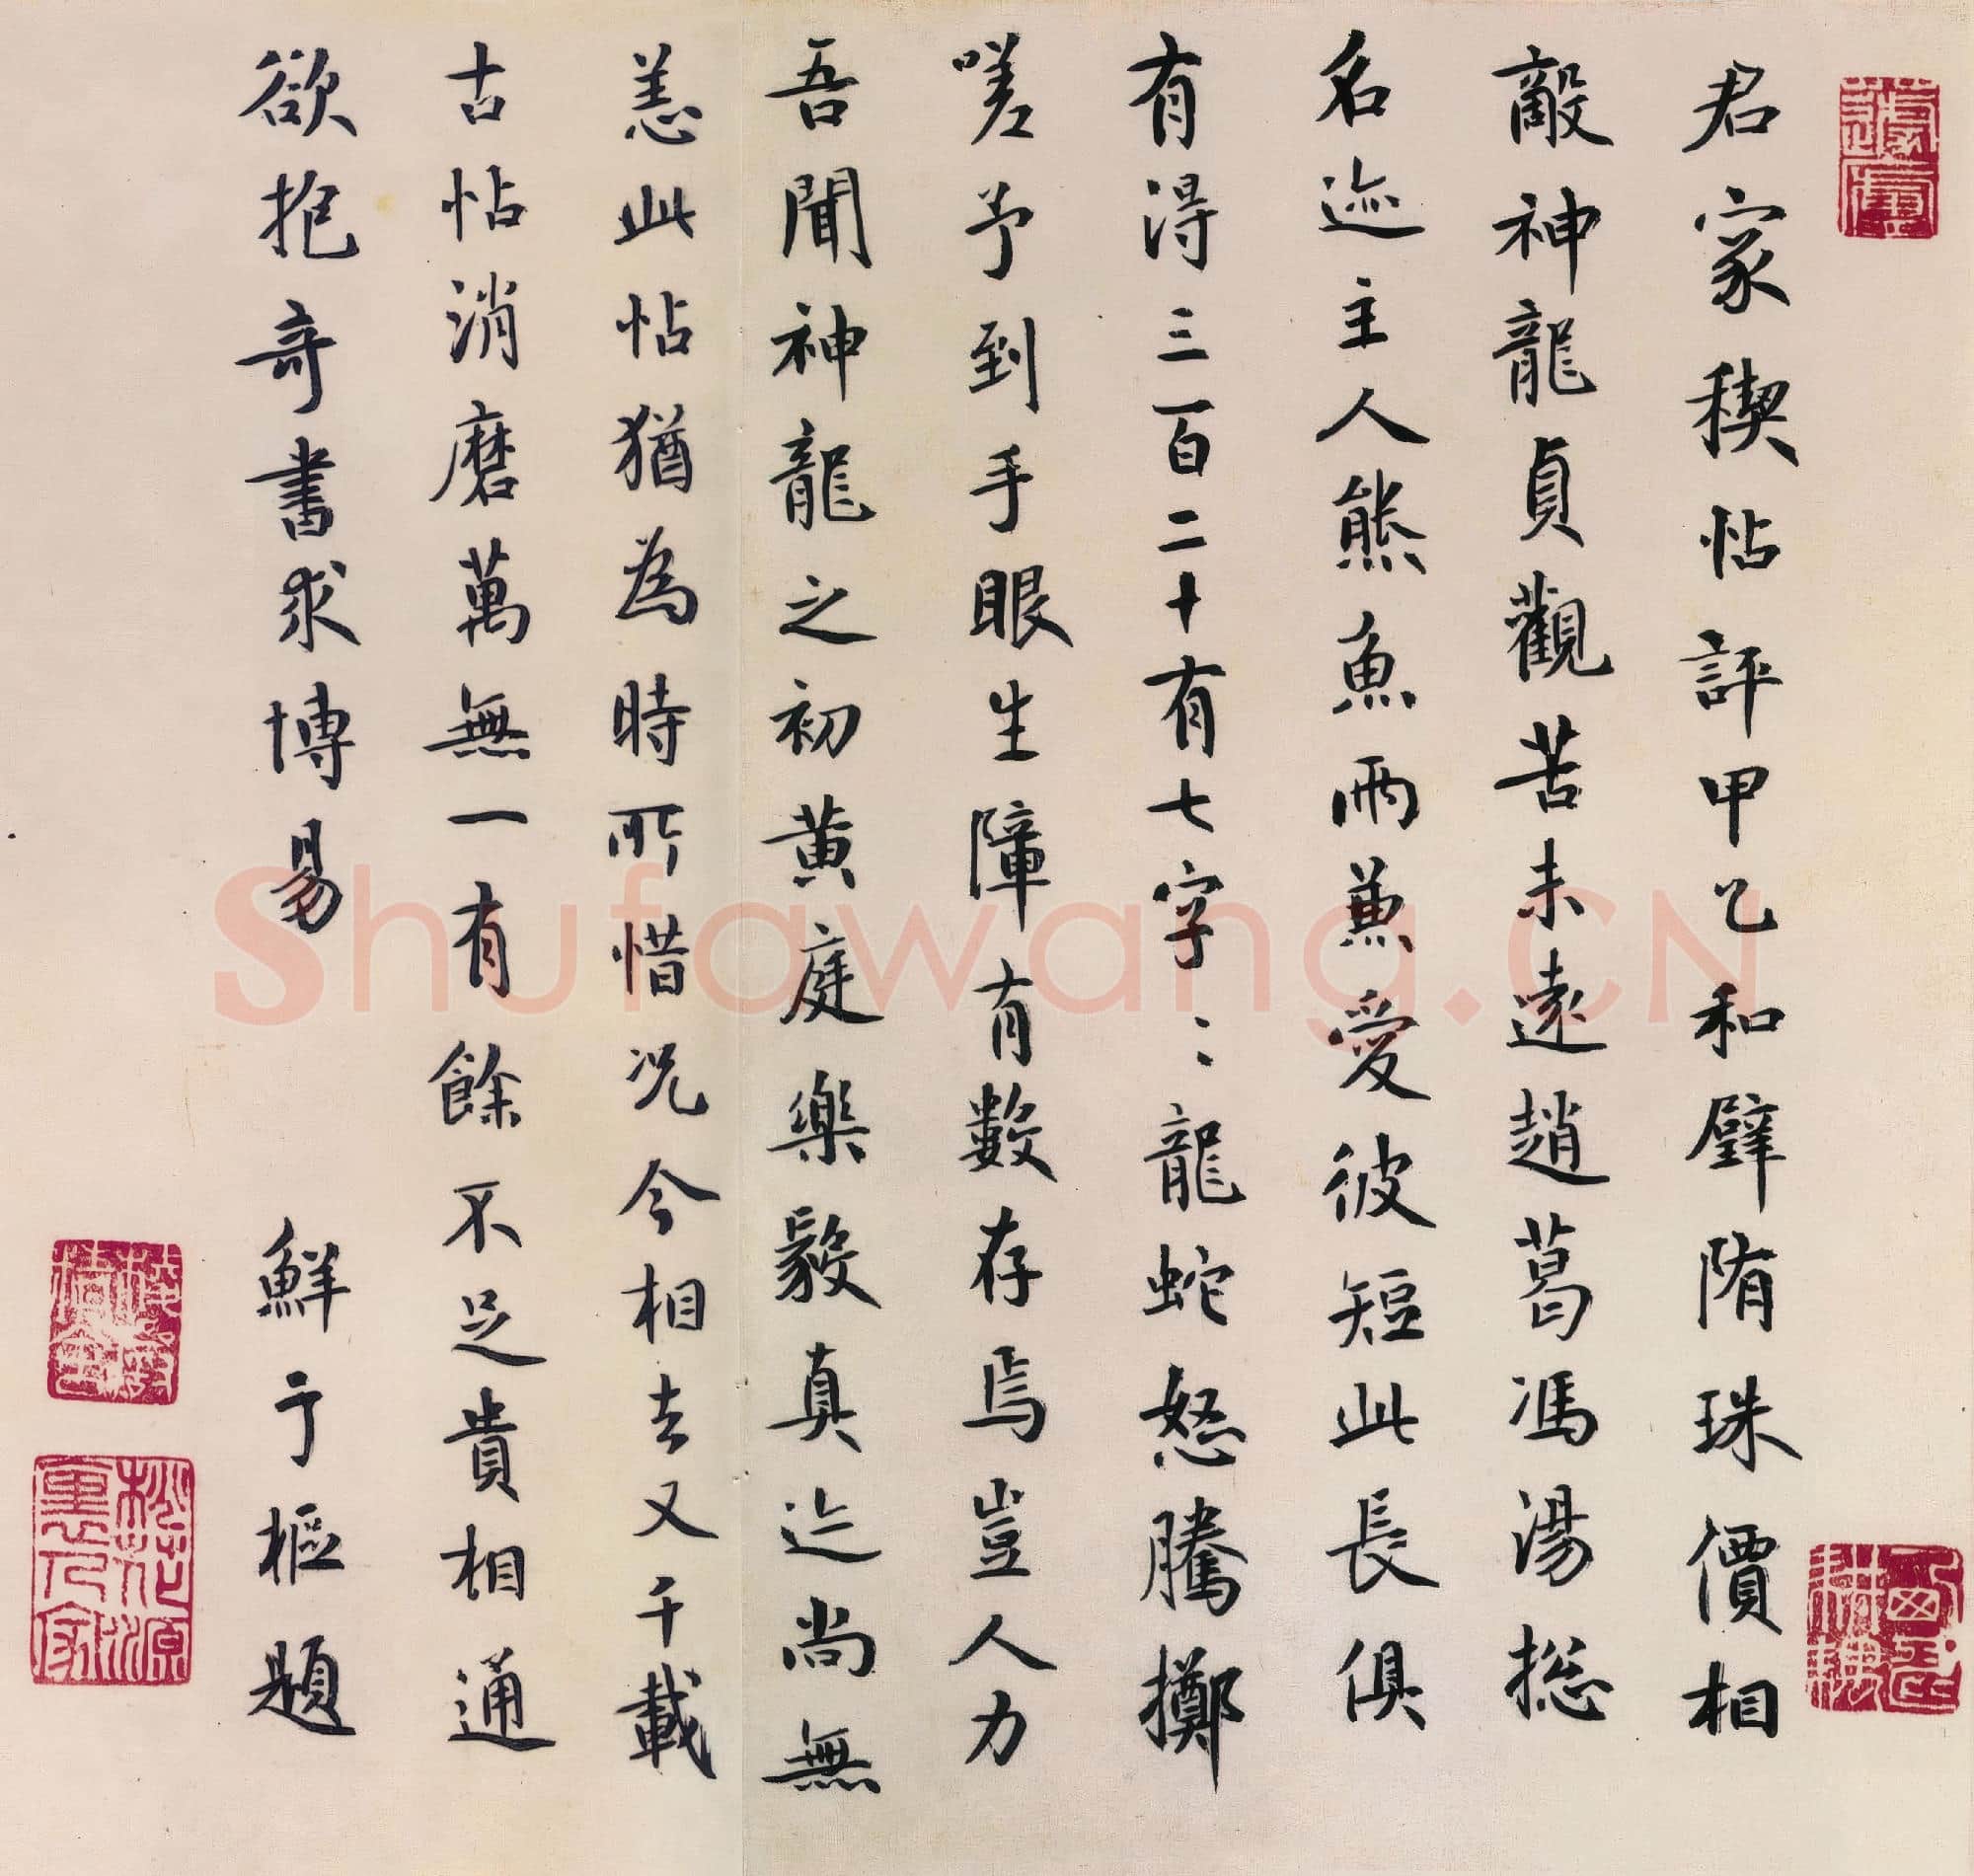 君家禊帖評甲乙和璧隋珠價相
敵神龍貞觀苦未遠趙葛馮湯總
名迹主人熊魚兩兼愛彼短此長俱
有得三百二十有七字〻龍蛇怒騰擲
嗟予到手眼生障有數存焉豈人力
吾聞神龍之初黃庭樂毅真迹尚無
恙此帖猶為時所惜況今相去又千載
古帖消磨萬無一有餘不足貴相通
欲抱奇書求博易
鮮于樞題
Shufawang.CN